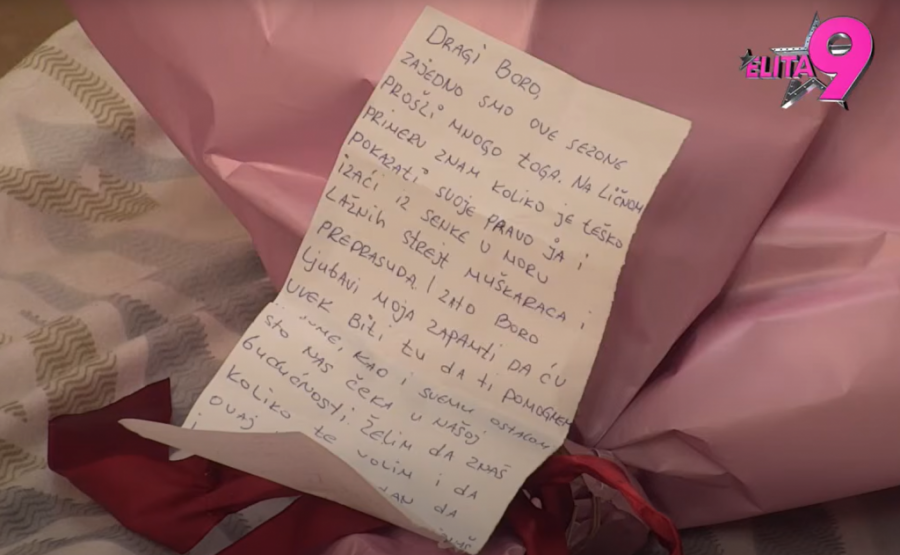 ELITA 9
DRAGI BORO,
ZAJEDNO SMO OVE SEZONE
PROŠLI MNOGO TOGA. NA LIČNOM
PRIMERU ZNAM KOLIKO JE TEŠKO
POKAZATI SVOJE PRAVO JA I
IZAĆI IZ SENKE U MORU
LAŽNIH STREJT MUŠKARACA I
PREDRASUDA I ZATO BORO
LJUBAVI MOJA ZAPAMTI DA ĆU
UVEK BITI TU DA TI POMOGNEM
U TOME, KAO I SVEMU OSTALOM
ŠTO NAS ČEKA U NAŠOJ
BUDUĆNOSTI. ŽELIM DA ZNAŠ
KOLIKO TE VOLIM I DA
I OVAJ DAN DA